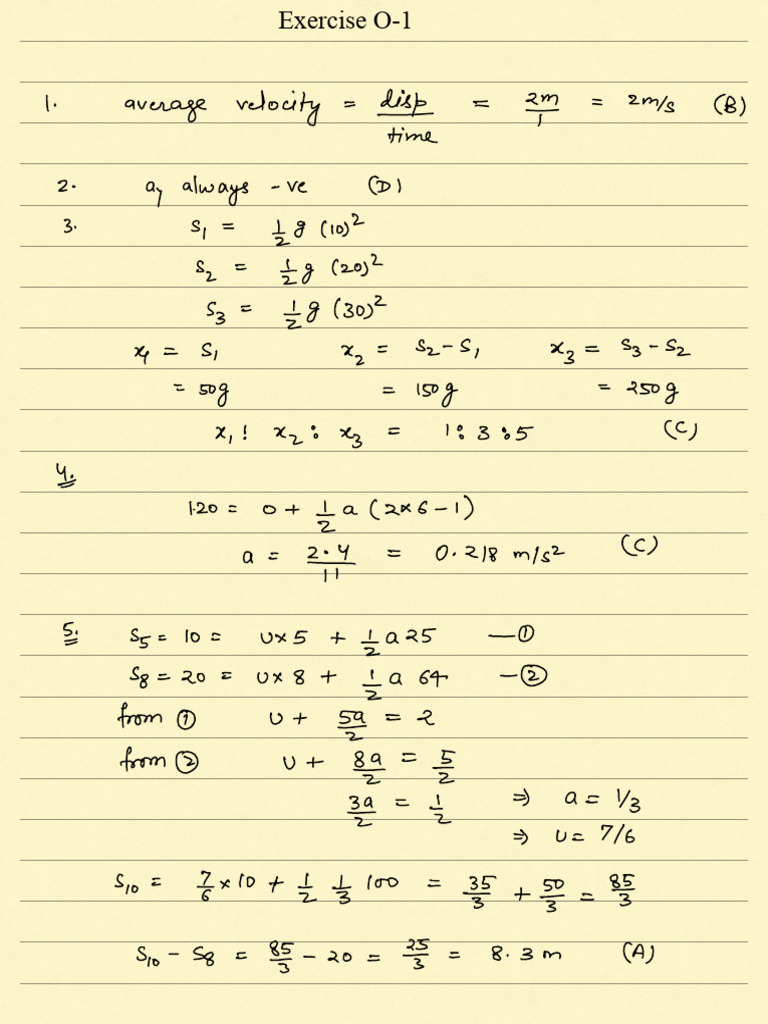 Exercise O-1
1. average velocity = disp/time = 2m/1 = 2m/s (B)
2. a, always -ve (D)
3. S₁ = 1/2 g (10)²
S₂ = 1/2 g (20)²
S₃ = 1/2 g (30)²
x₁ = S₁ x₂ = S₂-S₁ x₃ = S₃-S₂
= 50g = 150g = 250g
x₁ : x₂ : x₃ = 1:3:5 (C)
4.
1.20 = 0 + 1/2 a (2×6-1)
a = 2.4/11 = 0.218 m/s² (C)
5. S₅ = 10 = u×5 + 1/2 a 25 —①
S₈ = 20 = u×8 + 1/2 a 64 —②
from ① u + 5a/2 = 2
from ② u + 8a/2 = 5/2
3a/2 = 1/2 ⇒ a = 1/3
⇒ u = 7/6
S₁₀ = 7/6 ×10 + 1/2 1/3 100 = 35/3 + 50/3 = 85/3
S₁₀ - S₈ = 85/3 - 20 = 25/3 = 8.3 m (A)